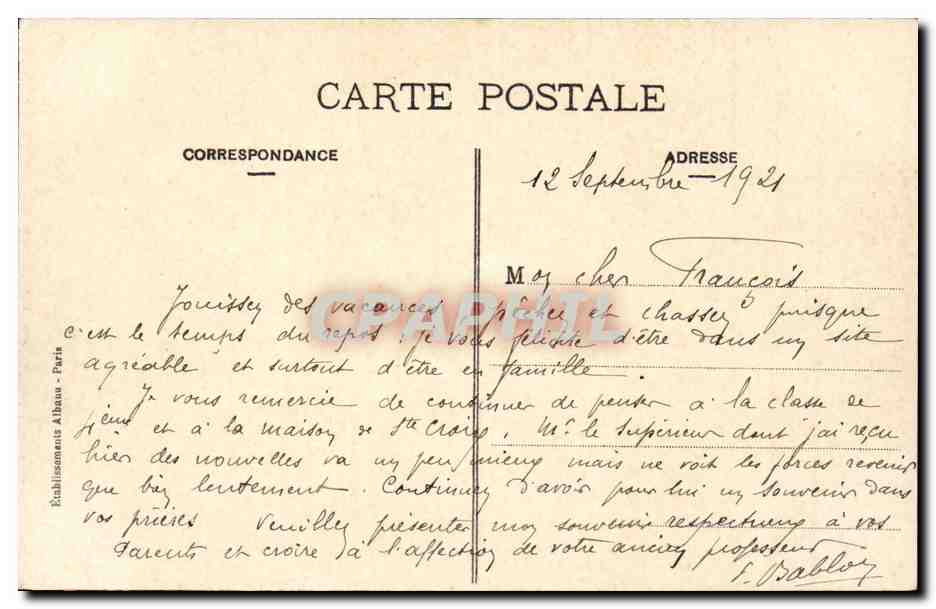 CARTE POSTALE
CORRESPONDANCE
ADRESSE
12 Septembre 1921
Mon cher François
Jouissez des vacances, pêchez et chassez puisque
c'est le temps du repos. Je vous félicite d'être dans un site
agréable et surtout d'être en famille.
Je vous remercie de continuer de penser à la classe de
et à la maison de Ste Croix. Mr le Supérieur dont j'ai reçu
hier des nouvelles va un peu mieux mais ne voit les forces revenir
que bien lentement. Continuez d'avoir pour lui un souvenir dans
vos prières Veuillez présenter mon souvenir respectueux à vos
Parents et croire à l'affection de votre ancien professeur
Etablissements Albanu - Paris
CPAPHIL